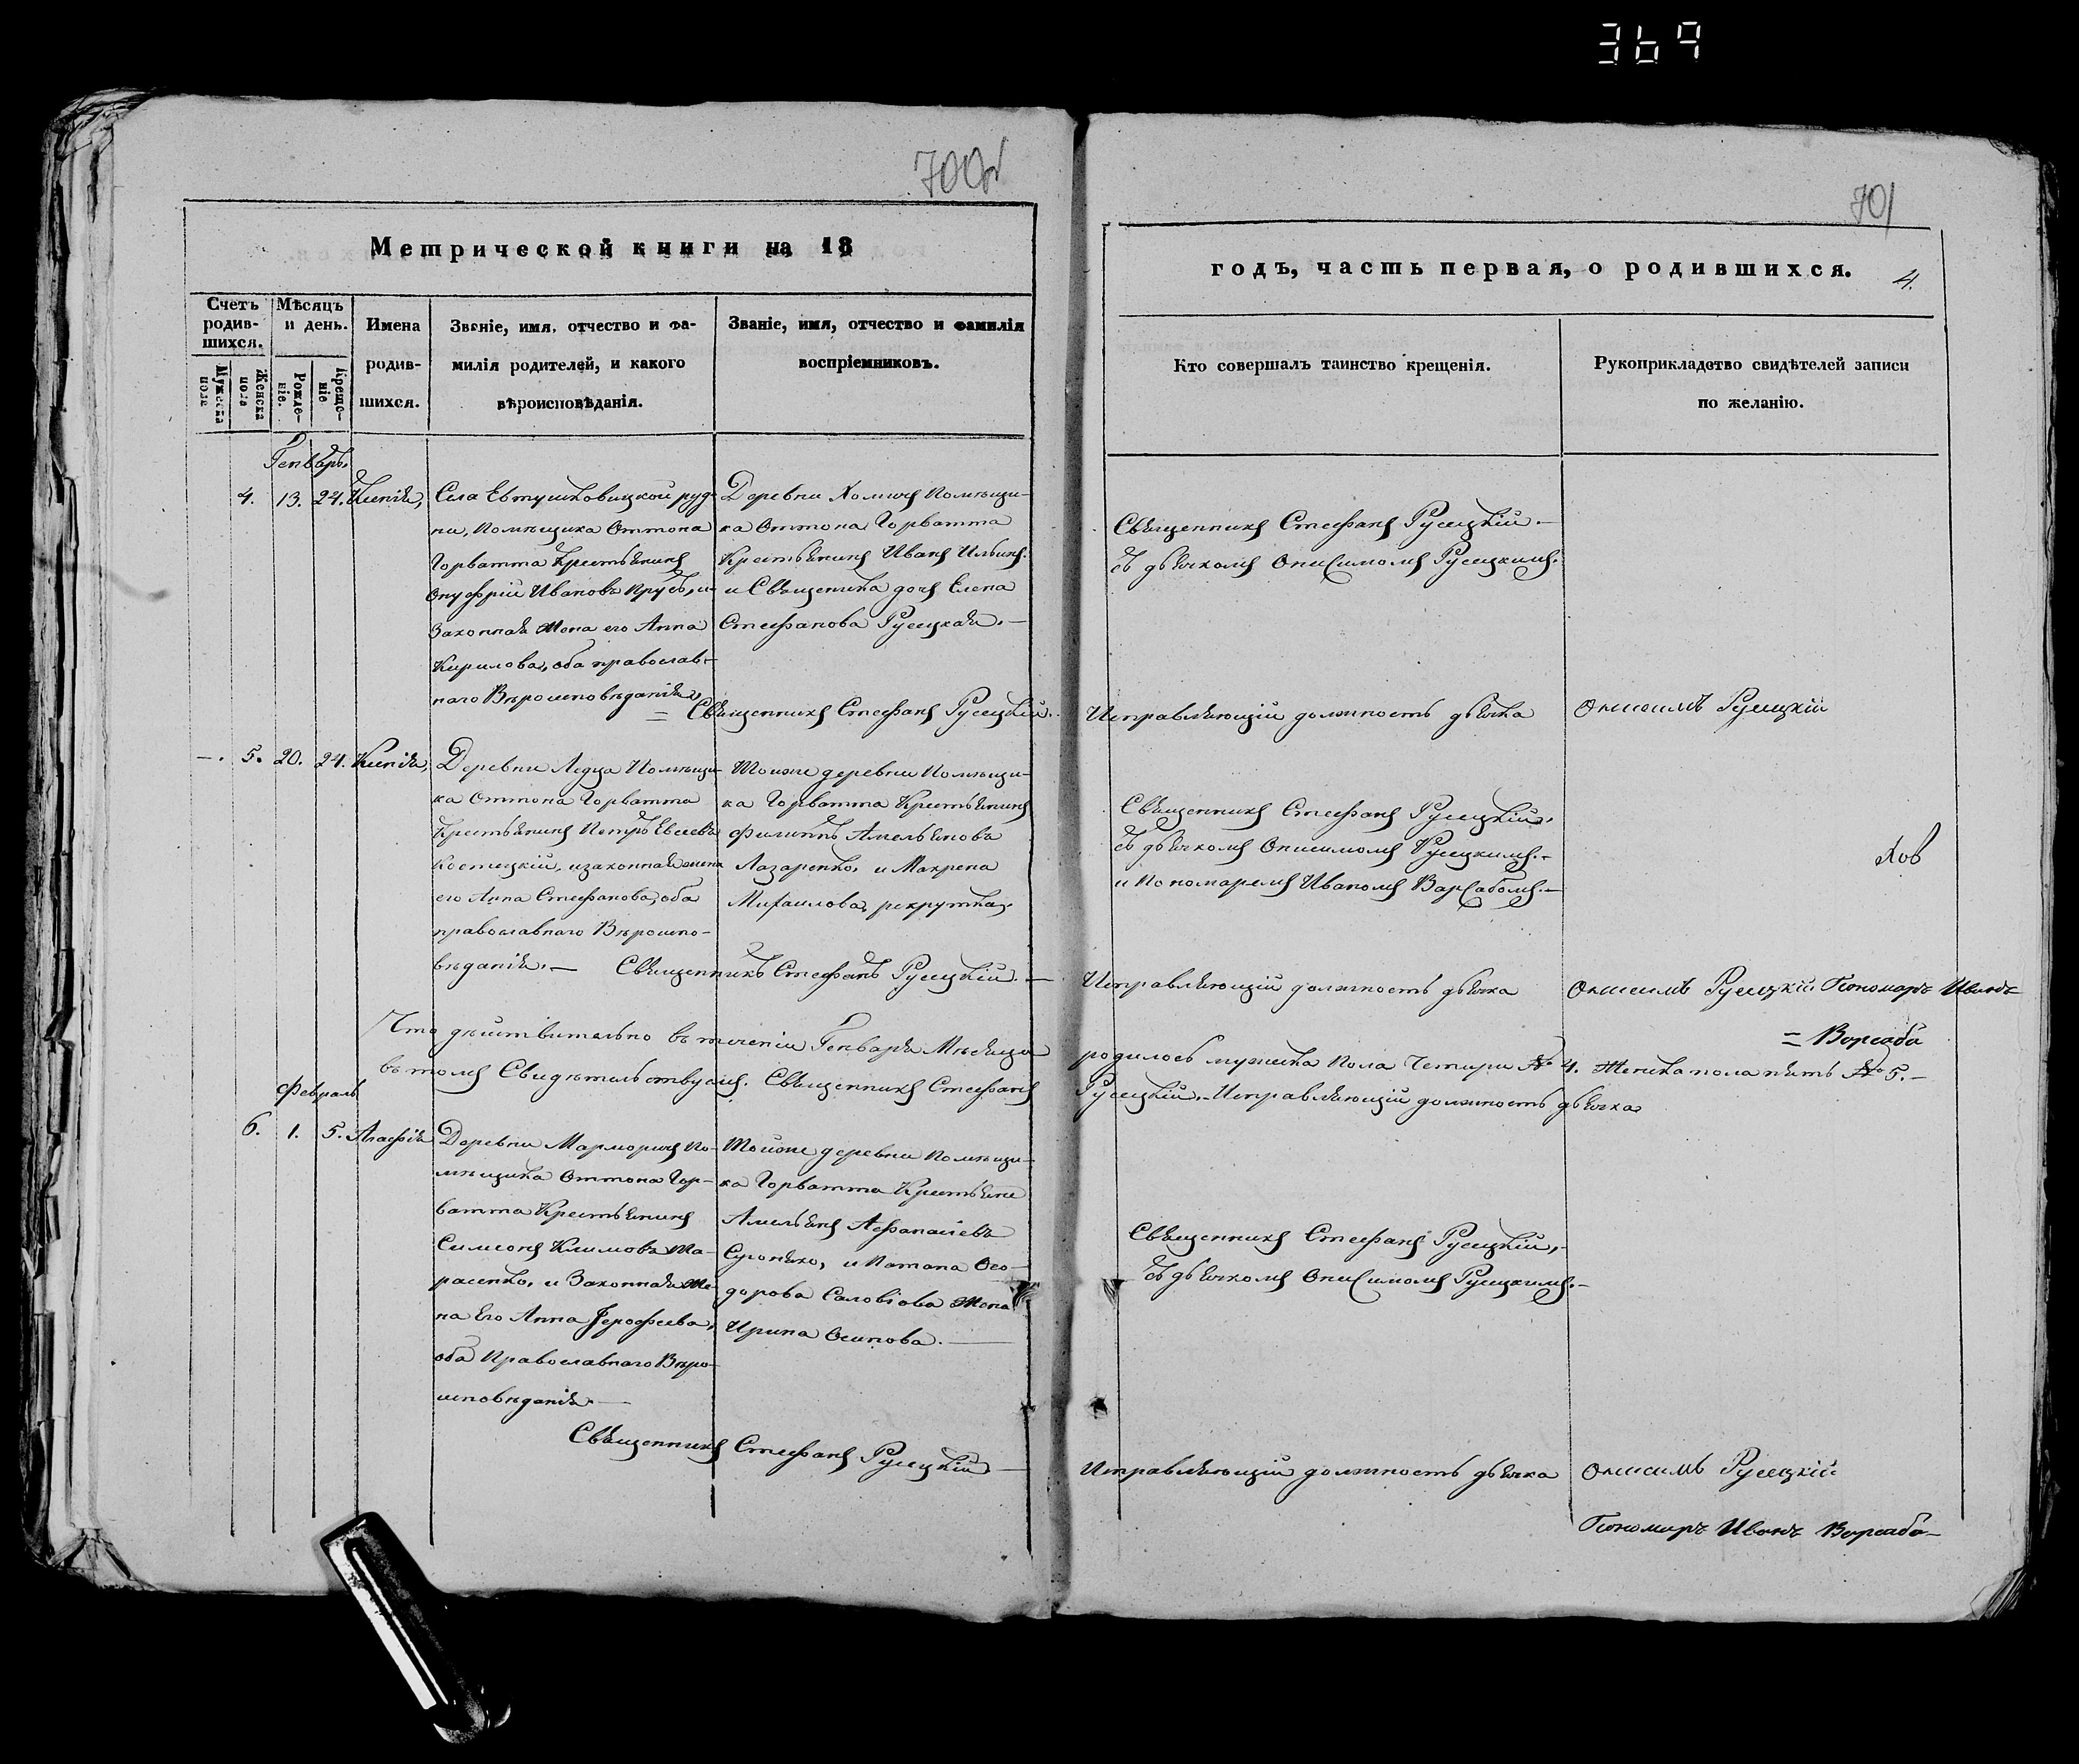 369
700б
701
Метрической книги на 18
годъ, часть первая, о родившихся.
4.
Счетъ родив-шихся.
Мужеска пола
Женска пола
Мѣсяцъ и день.
Рожде-ніе.
Креще-ніе
Имена
родив-
шихся.
Званіе, имя, отчество и фа-
милія родителей, и какого
вѣроисповѣданія.
Званіе, имя, отчество и фамилія
воспріемниковъ.
Кто совершалъ таинство крещенія.
Рукоприкладство свидѣтелей записи
по желанію.
Генварь.
4. 13. 24. Ксенія,
Села Евтушковицкой руд-
ни, Помѣщика Оттона
Горватта Крестьянинъ
Онуфрій Ивановъ Прусъ, и
Законная Жена его Анна
Кирилова, оба православ-
наго Вѣроисповѣданія,
Деревни Хомичъ Помѣщи-
ка Оттона Горватта
Крестьянинъ Иванъ Ильинъ.
и Священика дочь Елена
Стефанова Русецкая.—
Священникъ Стефанъ Русецкій.—
съ дьячкомъ Онисимомъ Русецкимъ.
= Священникъ Стефанъ Русецкій.
Исправляющій должность дьячка
Онисимъ Русецкій
—. 5. 20. 24. Ксенія,
Деревни Ледца Помѣщи-
ка Оттона Горватта
Крестьянинъ Петръ Евсеевъ
Костецкій, изаконная жена
его Анна Стефанова, оба
православнаго Вѣроиспо-
вѣданія.—
Тойже деревни Помѣщи-
ка Горватта Крестьянинъ
Филиппъ Амельяновъ
Лазаренко, и Макрена
Михаилова, рекрутка,
Священникъ Стефанъ Русецкій,
съ дьячкомъ Онисимомъ Русецкимъ.—
и Пономаремъ Иваномъ Варсабомъ.—
Священникъ Стефанъ Русецкій.—
Исправляющій должность дьячка
Онисимъ Русецкій Пономарь Иванъ
= Варсаба
Что дѣйствительно въ теченіи Генваря Мѣсяца родилось мужеска Пола Четыри № 4. Женска пола пять № 5.—
въ томъ Свидѣтельствуемъ. Священникъ Стефанъ Русецкій.— Исправляющій должность дьячка
Февраль
6. 1. 5. Агафія
Деревни Марморичъ По-
мѣщика Оттона Гор-
ватта Крестьянинъ
Симеонъ Климовъ Та-
расенко, и Законная Же-
на Его Анна Іерофеева,
оба Православнаго Вѣро-
исповѣданія.—
Тойже деревни Помѣщи-
ка Горватта Крестьяне
Амельянъ Афанасіевъ
и Потапа Ѳео-
дорова Саловіова Жена
Ирина Осипова.—
Священникъ Стефанъ Русецкій,—
съ дьячкомъ Онисимомъ Русецкимъ.—
Священникъ Стефанъ Русецкій—
Исправляющій должность дьячка
Онисимъ Русецкій
Пономарь Иванъ Варсаба—